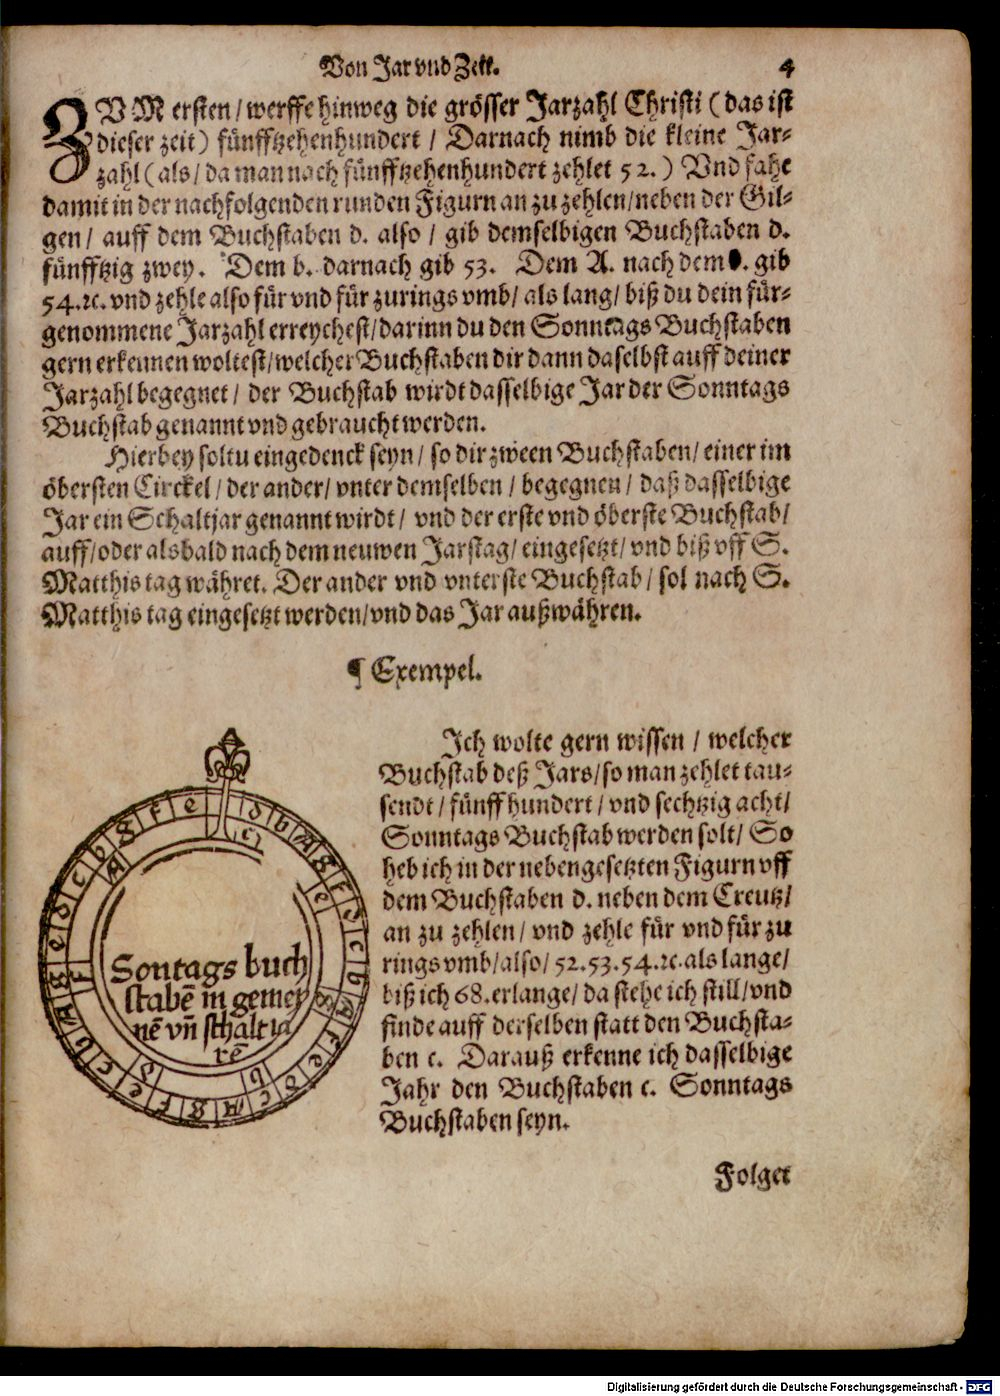 Von Jar vnd Zeit. 4
ZVM ersten / werffe hinweg die grösser Jarzahl Christi (das ist
dieser zeit) fünfftzehenhundert / Darnach nimb die kleine Jar-
zahl (als / da man nach fünfftzehenhundert zehlet 52.) Vnd fahe
damit in der nachfolgenden runden Figurn an zu zehlen / neben der Gil-
gen / auff dem Buchstaben d. also / gib demselbigen Buchstaben d.
fünfftzig zwey. Dem b. darnach gib 53. Dem A. nach dem gib
54. ꝛc. vnd zehle also für vnd für zurings vmb / als lang / biß du dein für-
genommene Jarzahl erreychest / darinn du den Sonntags Buchstaben
gern erkennen woltest / welcher Buchstaben dir dann daselbst auff deiner
Jarzahl begegnet / der Buchstab wirdt dasselbige Jar der Sonntags
Buchstab genannt vnd gebraucht werden.
Hierbey soltu eingedenck seyn / so dir zween Buchstaben / einer im
öbersten Circkel / der ander / vnter demselben / begegnen / daß dasselbige
Jar ein Schaltjar genannt wirdt / vnd der erste vnd öberste Buchstab /
auff / oder alsbald nach dem neuwen Jarstag / eingesetzt / vnd biß vff S.
Matthis tag währet. Der ander vnd vnterste Buchstab / sol nach S.
Matthis tag eingesetzt werden / vnd das Jar außwähren.
¶ Exempel.
Ich wolte gern wissen / welcher
Buchstab deß Jars / so man zehlet tau-
sendt / fünff hundert / vnd sechtzig acht /
Sonntags Buchstab werden solt / So
heb ich in der nebengesetzten Figurn vff
dem Buchstaben d. neben dem Creutz /
an zu zehlen / vnd zehle für vnd für zu
rings vmb / also / 52. 53. 54. ꝛc. als lange /
biß ich 68. erlange / da stehe ich still / vnd
finde auff derselben statt den Buchsta-
ben c. Darauß erkenne ich dasselbige
Jahr den Buchstaben c. Sonntags
Buchstaben seyn.
Sontags buch
stabē in gemey
nē vñ schalt ia
rē
Folget
Digitalisierung gefördert durch die Deutsche Forschungsgemeinschaft - DFG